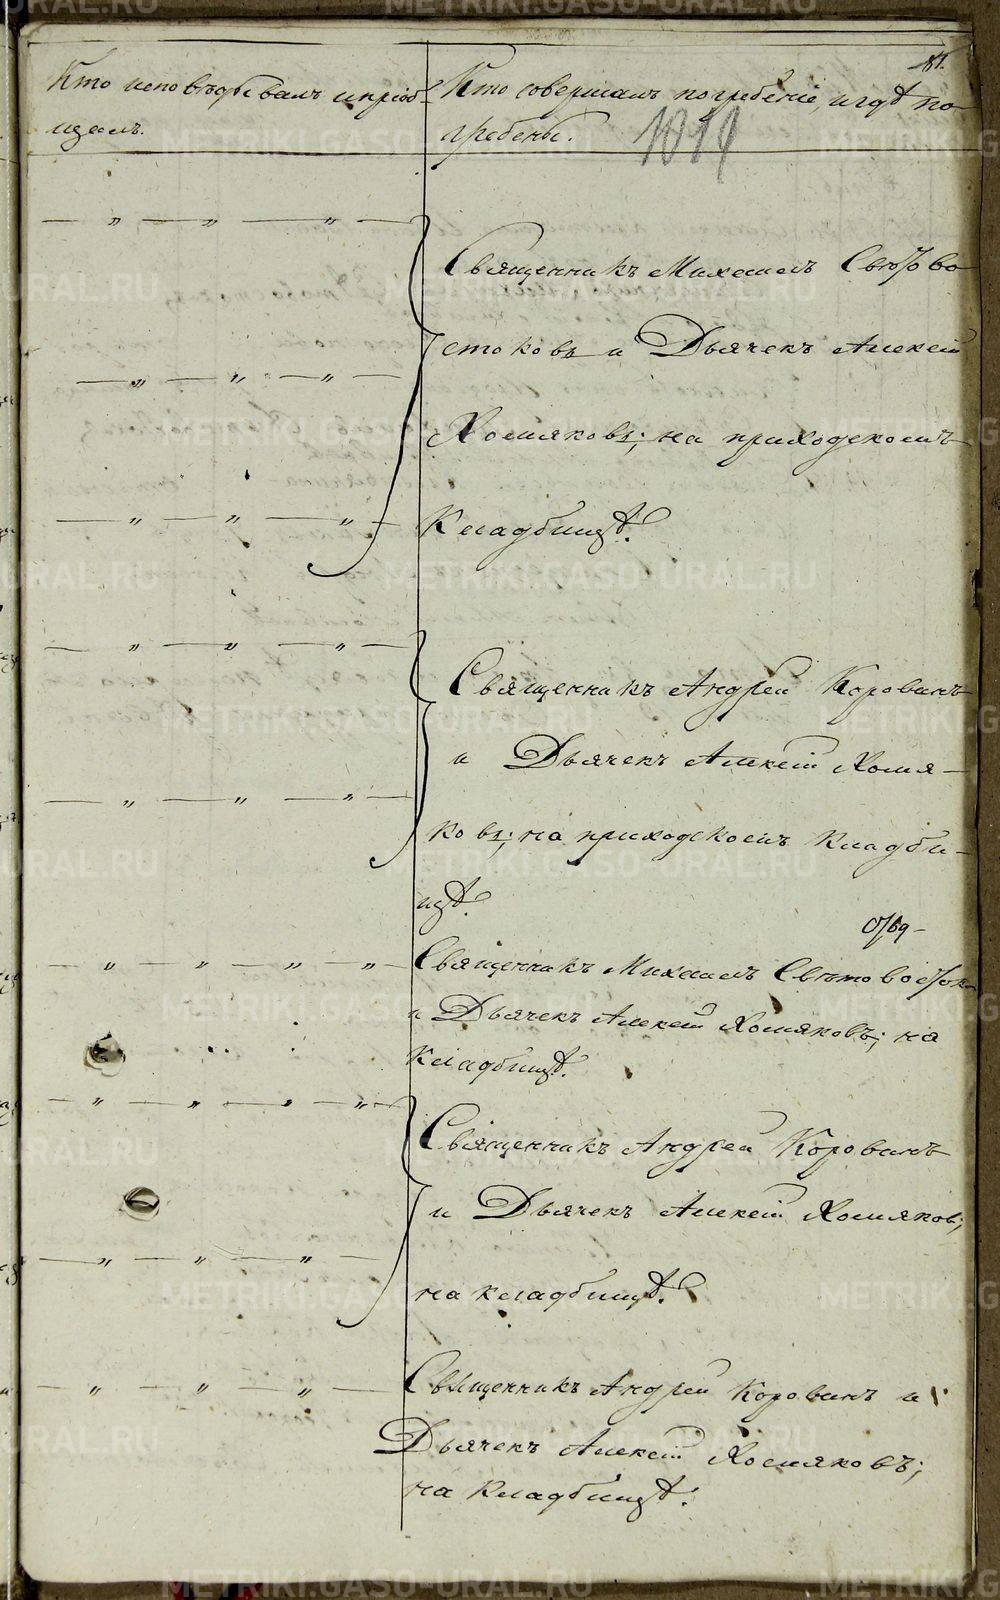 81.
Кто исповѣдывалъ и пріоб-
щалъ.
Кто совершалъ погребеніе, и гдѣ по-
гребены.
1819
Священникъ Михаилъ Свѣтово
стоковъ и Дьячекъ Алексѣй
Хомяковъ; на приходскомъ
Кладбищѣ.
Священникъ Андрей Коровинъ
и Дьячекъ Алексѣй Хомя-
ковъ; на приходскомъ Кладби-
щѣ.
Священникъ Михаилъ Свѣтовосток
и Дьячекъ Алексѣй Хомяковъ; на
Кладбищѣ.
Священникъ Андрей Коровинъ
и Дьячекъ Алексѣй Хомяков;
на кладбищѣ.
Священникъ Андрей Коровинъ и
Дьячекъ Алексѣй Хомяковъ;
на Кладбищѣ.
METRIKI.GASO-URAL.RU